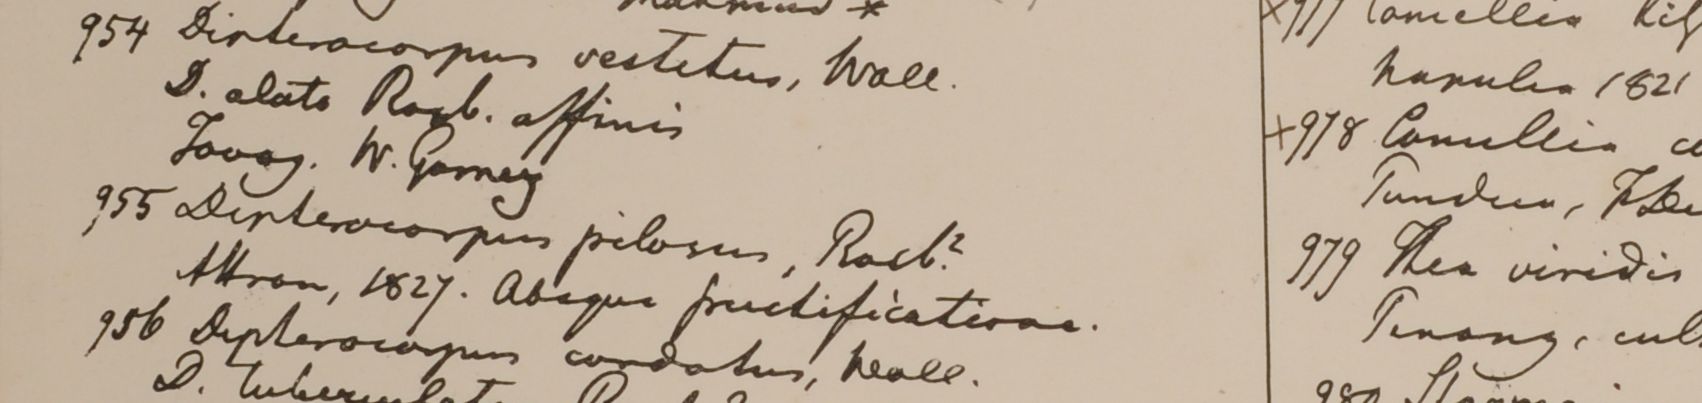 954 Dipterocarpus vestitus, Wall.
D. alato Roxb. affinis
Tavoy. W. Gomez
955 Dipterocarpus pilosus, Roxb?
Attran, 1827. Absque fructificatione.
956 Dipterocarpus cordatus, Wall.
D. tuberculato
977 Camellia
Napulia 1821
x978 Camellia
979 Thea viridis
Penang, cult
980